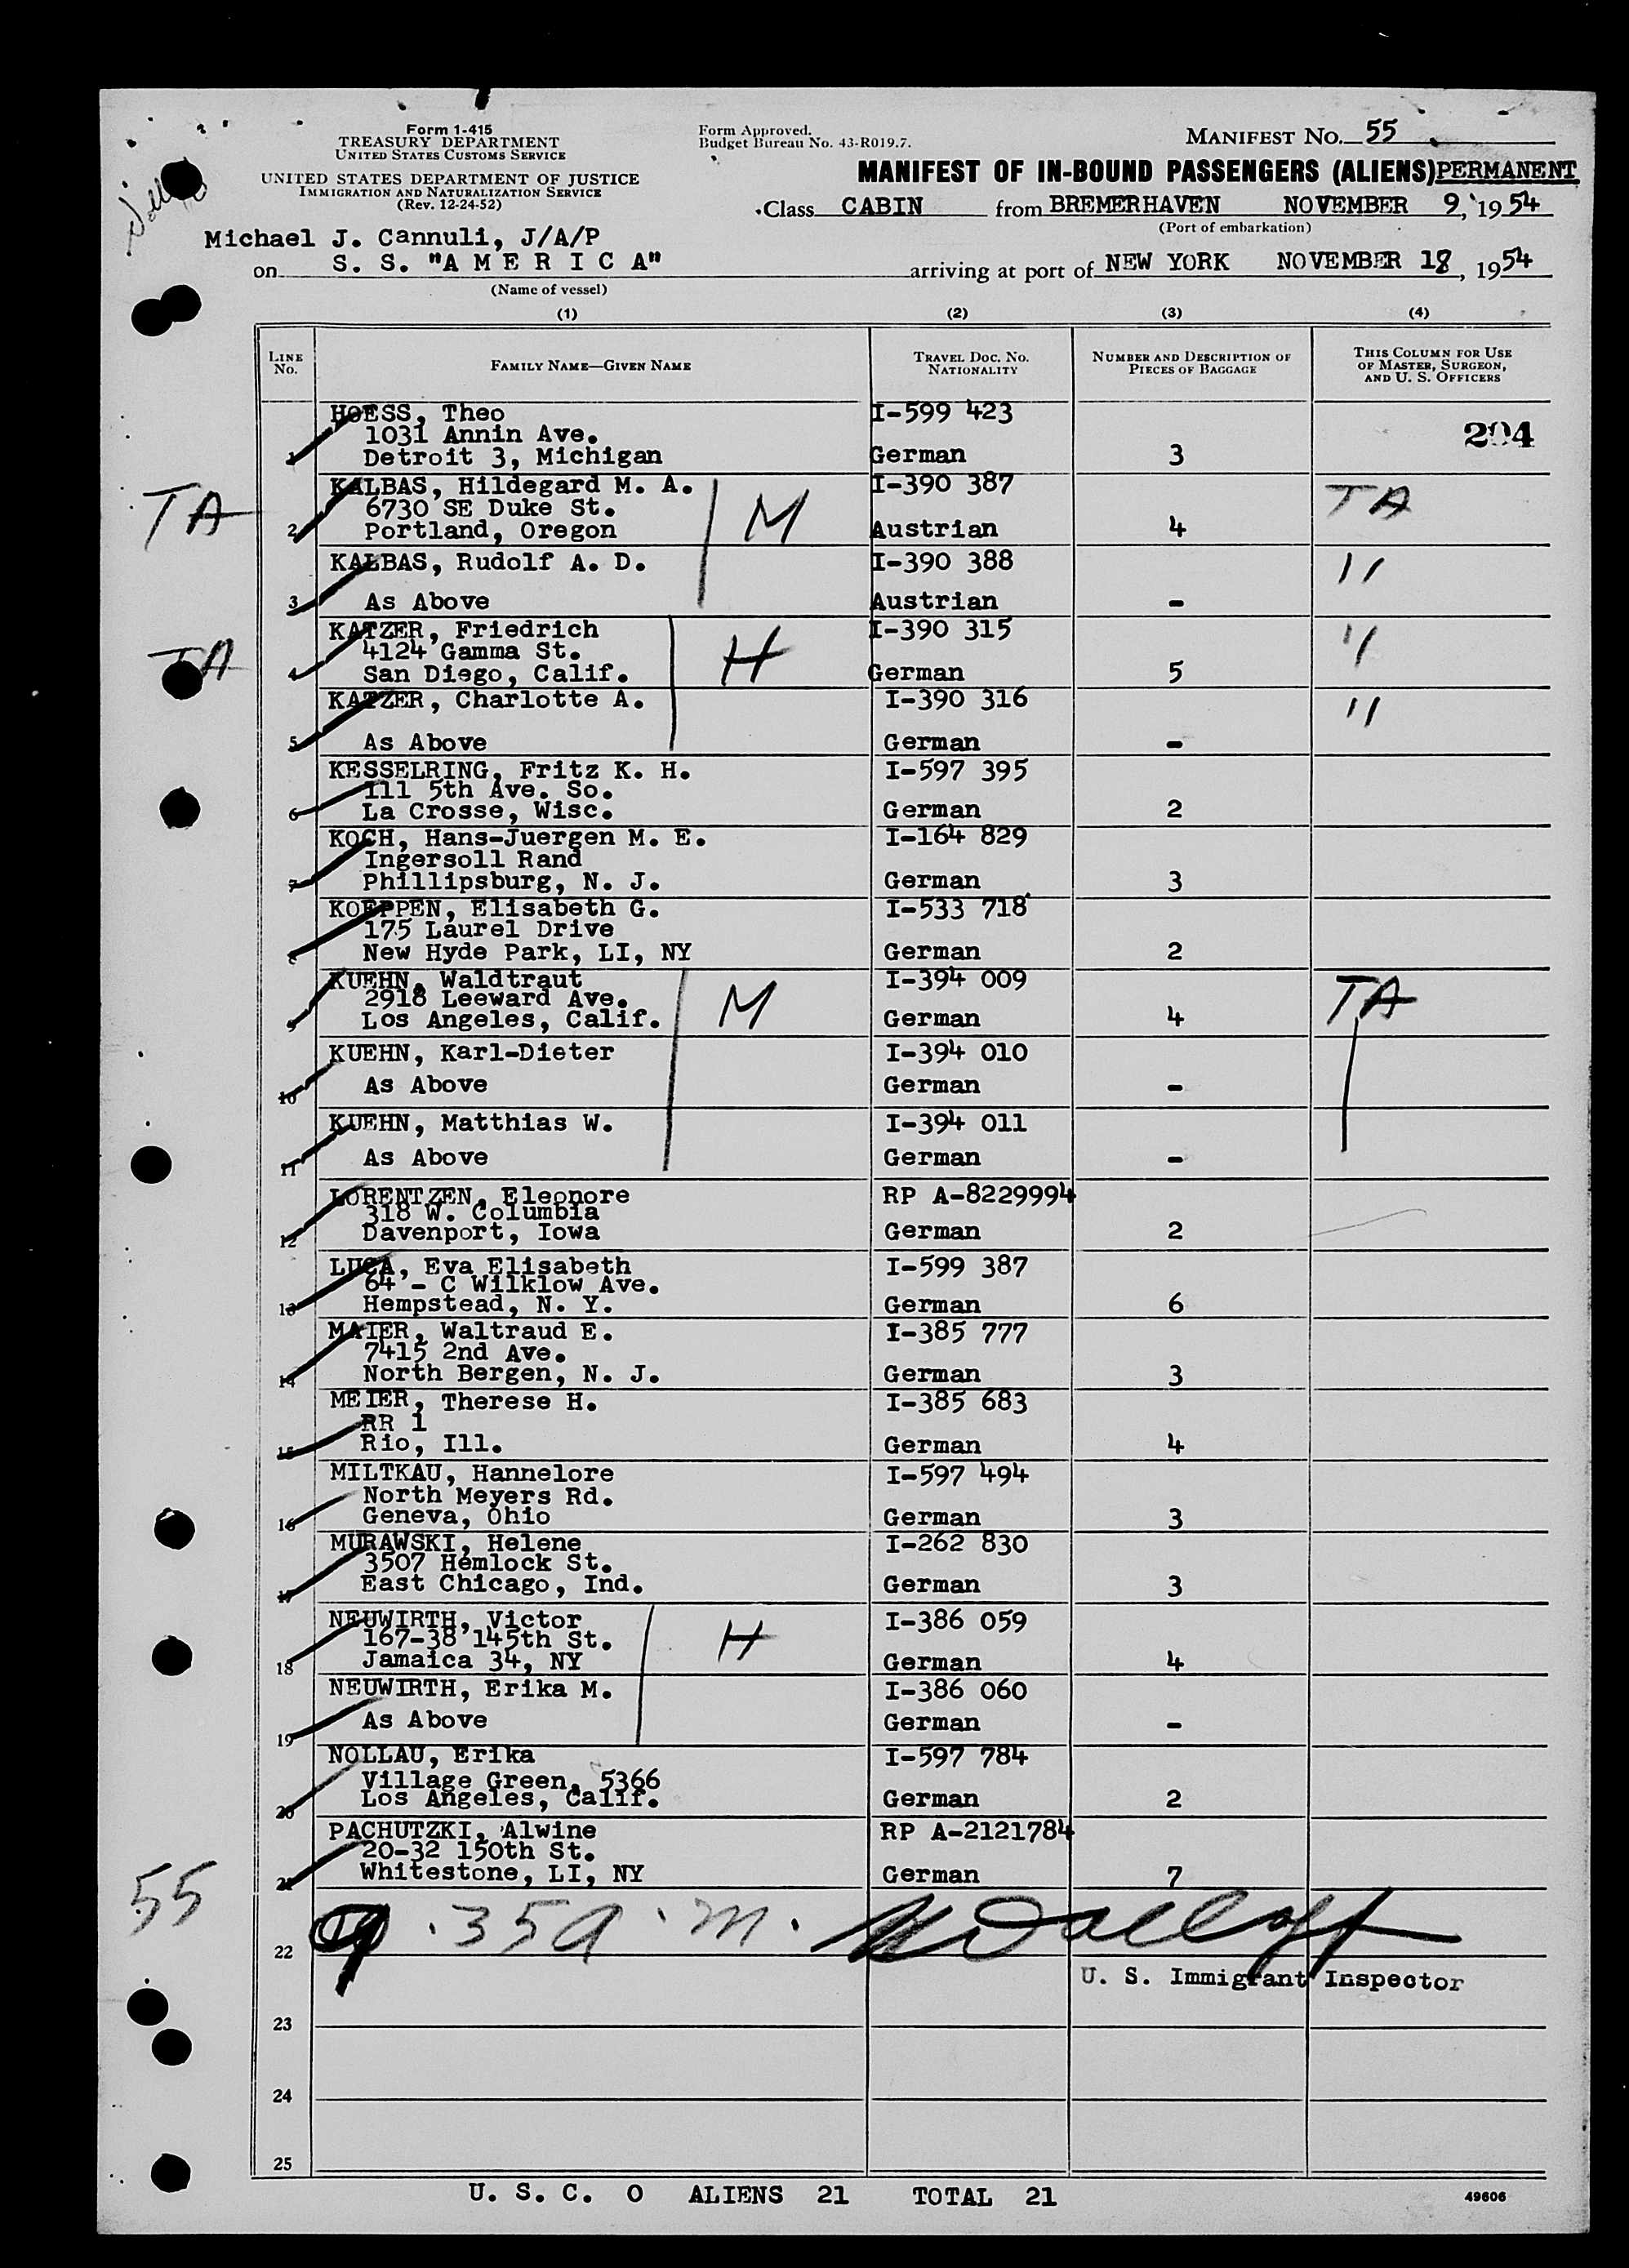 Form 1-415
TREASURY DEPARTMENT
UNITED STATES CUSTOMS SERVICE
UNITED STATES DEPARTMENT OF JUSTICE
IMMIGRATION AND NATURALIZATION SERVICE
(Rev. 12-24-52)
Form Approved.
Budget Bureau No. 43-R019.7.
MANIFEST NO. 55
MANIFEST OF IN-BOUND PASSENGERS (ALIENS) PERMANENT
Class CABIN from BREMERHAVEN NOVEMBER 9, 1954
(Port of embarkation)
Michael J. Cannuli, J/A/P
on S. S. "A M E R I C A" arriving at port of NEW YORK NOVEMBER 18, 1954
(Name of vessel)
(1) (2) (3) (4)
LINE NO. FAMILY NAME—GIVEN NAME TRAVEL DOC. NO. NATIONALITY NUMBER AND DESCRIPTION OF PIECES OF BAGGAGE THIS COLUMN FOR USE OF MASTER, SURGEON, AND U. S. OFFICERS
HOESS, Theo I-599 423
1031 Annin Ave. 204
1 Detroit 3, Michigan German 3
KALBAS, Hildegard M. A. I-390 387
TA 6730 SE Duke St. M TA
2 Portland, Oregon Austrian 4
KALBAS, Rudolf A. D. I-390 388 "
3 As Above Austrian -
KATZER, Friedrich I-390 315 "
TA 4124 Gamma St. H
4 San Diego, Calif. German 5
KATZER, Charlotte A. I-390 316 "
5 As Above German -
KESSELRING, Fritz K. H. I-597 395
111 5th Ave. So.
6 La Crosse, Wisc. German 2
KOCH, Hans-Juergen M. E. I-164 829
Ingersoll Rand
7 Phillipsburg, N. J. German 3
KOEPPEN, Elisabeth G. I-533 718
175 Laurel Drive
8 New Hyde Park, LI, NY German 2
KUEHN, Waldtraut I-394 009
2918 Leeward Ave. M TA
9 Los Angeles, Calif. German 4
KUEHN, Karl-Dieter I-394 010
10 As Above German -
KUEHN, Matthias W. I-394 011
11 As Above German -
LORENTZEN, Eleonore RP A-8229994
318 W. Columbia
12 Davenport, Iowa German 2
LUCA, Eva Elisabeth I-599 387
64 - C Wilklow Ave.
13 Hempstead, N. Y. German 6
MAIER, Waltraud E. I-385 777
7415 2nd Ave.
14 North Bergen, N. J. German 3
MEIER, Therese H. I-385 683
RR 1
15 Rio, Ill. German 4
MILTKAU, Hannelore I-597 494
North Meyers Rd.
16 Geneva, Ohio German 3
MURAWSKI, Helene I-262 830
3507 Hemlock St.
17 East Chicago, Ind. German 3
NEUWIRTH, Victor I-386 059
167-38 145th St. H
18 Jamaica 34, NY German 4
NEUWIRTH, Erika M. I-386 060
19 As Above German -
NOLLAU, Erika I-597 784
Village Green, 5366
20 Los Angeles, Calif. German 2
PACHUTZKI, Alwine RP A-2121784
20-32 150th St.
21 Whitestone, LI, NY German 7
55
22 9.35 a.m.
U. S. Immigrant Inspector
23
24
25
U. S. C. 0 ALIENS 21 TOTAL 21
49606